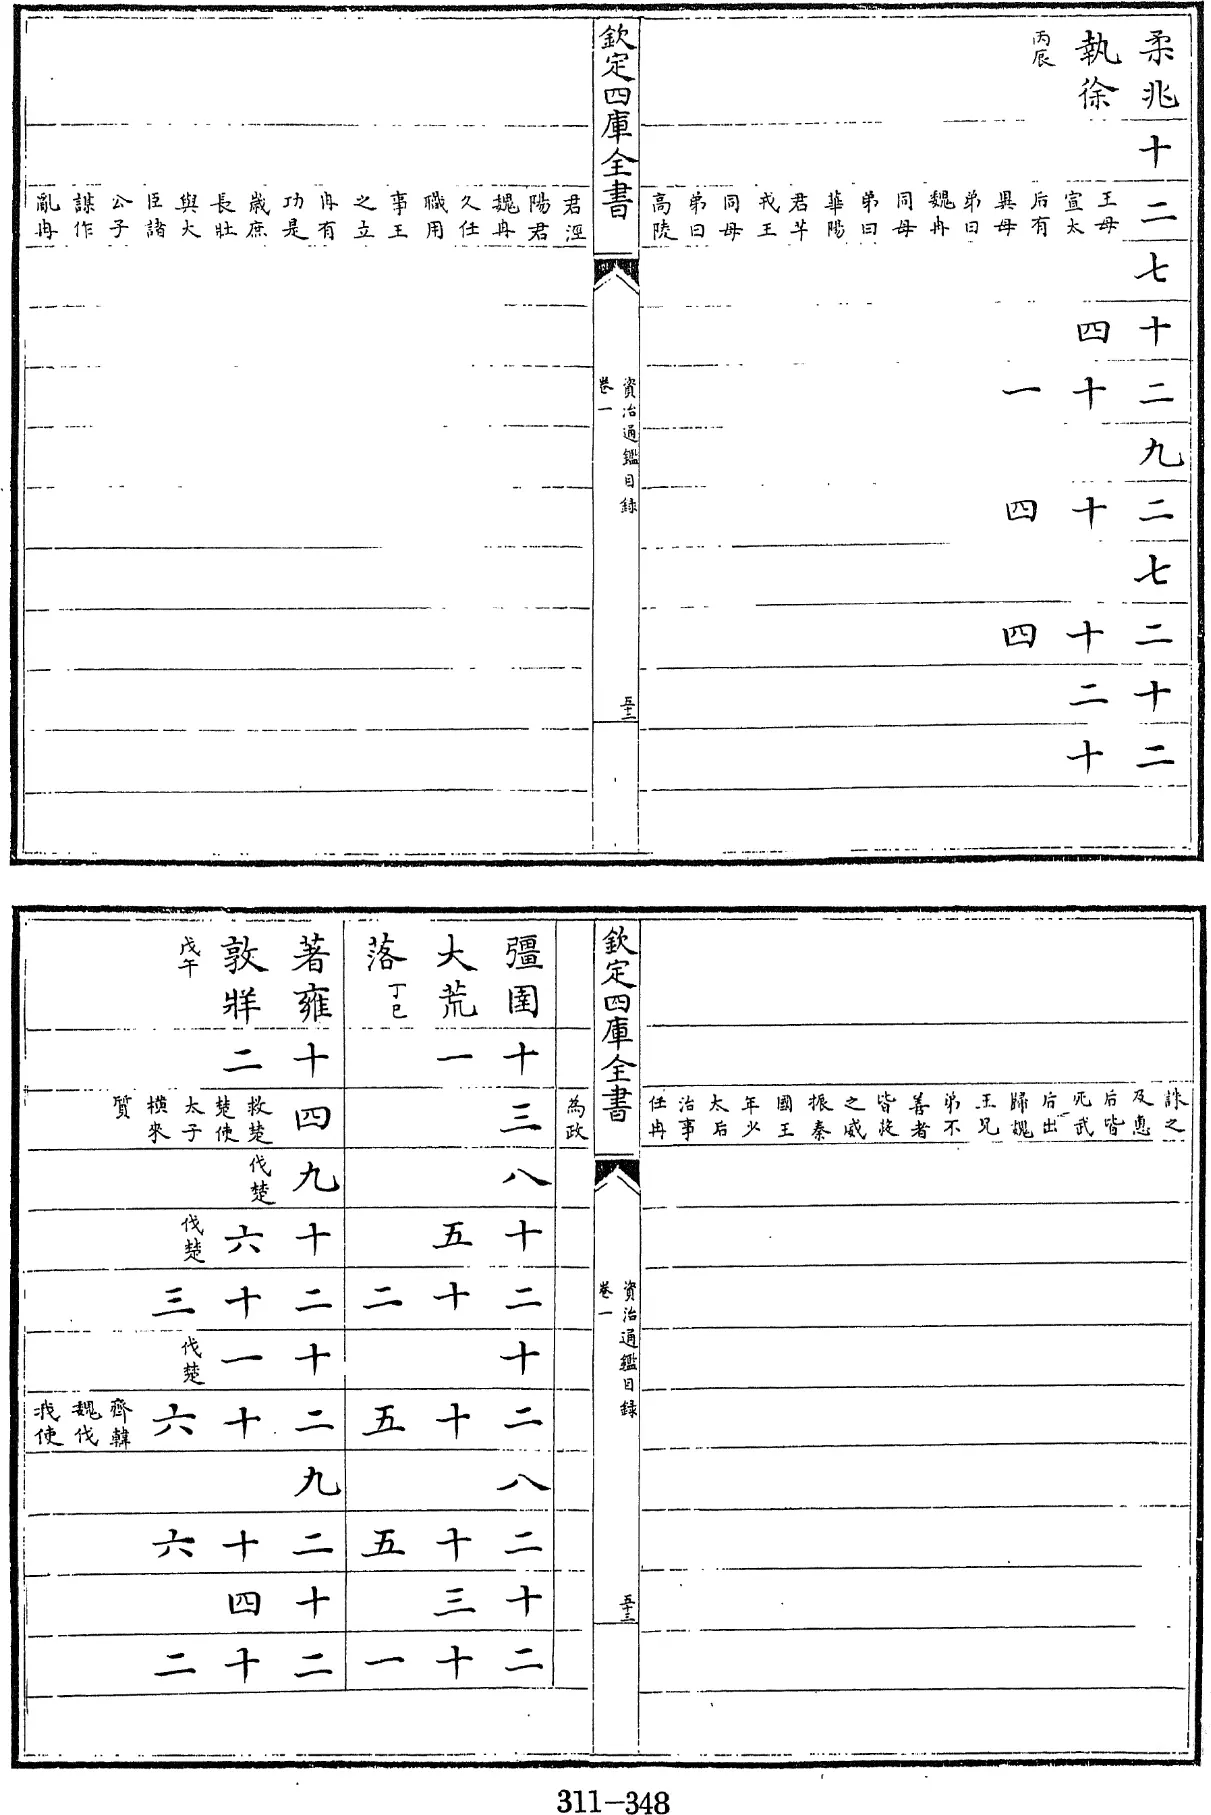 柔兆執徐丙辰
十
二 王母宣太后有異母弟曰魏冉同母弟曰華陽君芊戎王同母弟曰高陵
七
十四
二十一
九
二十四
七
二十四
十二
二十
欽定四庫全書
資治通鑑目錄
卷一
五十二
君涇陽君魏冉久任職用事王之立冉有功是歲庶長壯與大臣諸公子謀作亂冉
誅之及惠后皆死武后出歸魏王兄弟不善者皆之威振秦國王年少太后治事任冉
欽定四庫全書
資治通鑑目錄
卷一
五十三
為政
彊圉大荒落丁巳
十一
三
八
十五
二十二
十
二十五
八
二十五
十三
二十一
著雍敦牂戊午
十二
四 救楚楚使太子橫來質
九 伐楚
十六 伐楚
二十三
十一 伐楚
二十六 齊韓魏伐我使
九
二十六
十四
二十二
311-348